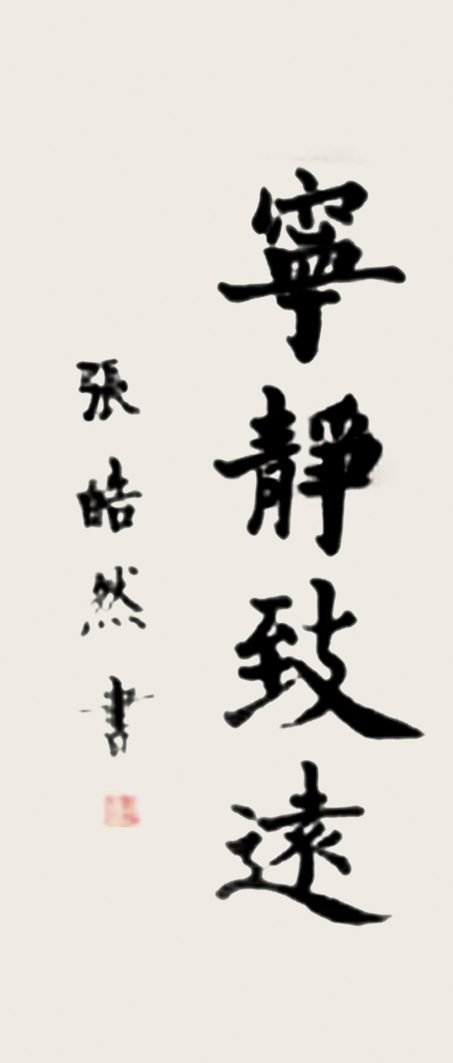 寧靜致遠
張皓然書